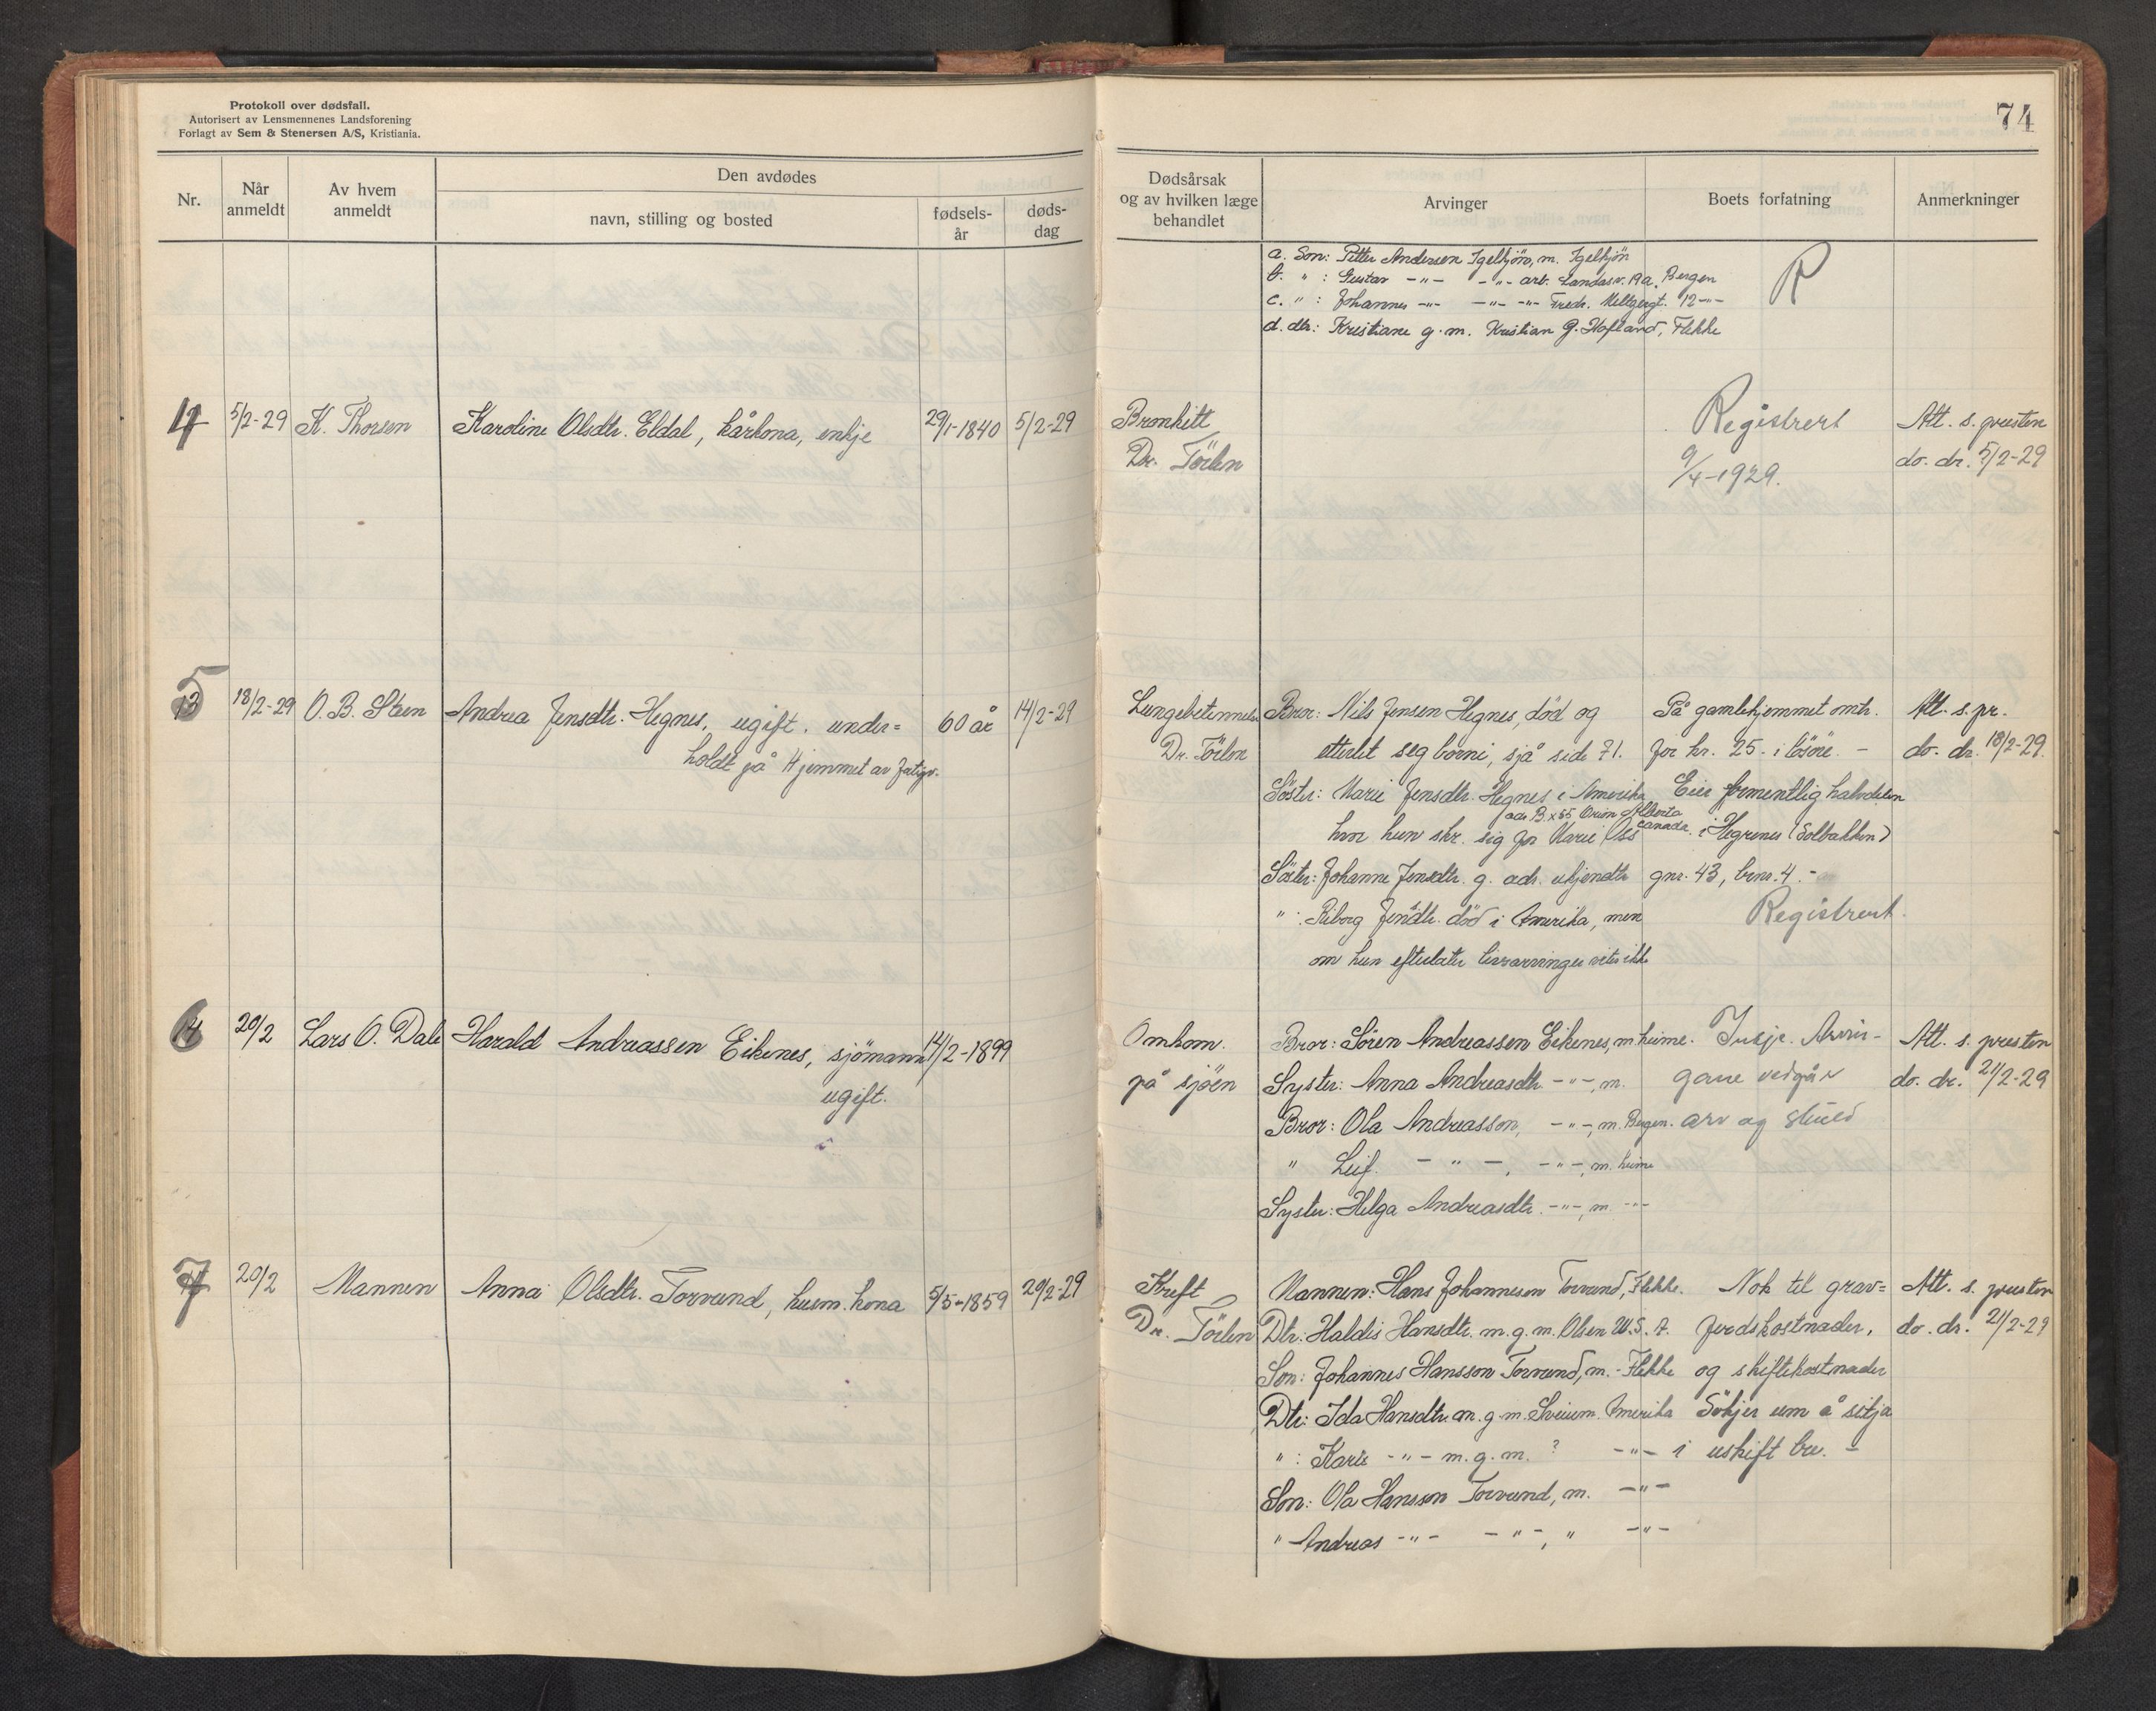 Protokoll over dødsfall.
Autorisert av Lensmennenes Landsforening
Forlagt av Sem & Stenersen A/S, Kristiania.
74
Nr.
Når anmeldt
Av hvem anmeldt
Den avdødes
navn, stilling og bosted
fødsels-år
døds-dag
Dødsårsak og av hvilken læge behandlet
Arvinger
Boets forfatning
Anmerkninger
a. Son: Petter Andersen Igelkjön, m. Igelkjön
b. " : Gustav -"- -"- arb. Landasv. 19a, Bergen
c. " : Johannes -"- -"- -"- Fredr. Meltzergt. 12 -"-
d. dtr: Kristiane g.m. Kristian G. Hofland, Flekke
R
4 5/2-29 K. Thorsen Karoline Olsdtr. Eldal, kårkona, enkje 29/1-1840 5/2-29
Bronkitt
Dr. Törlen
Registrert
9/4-1929.
Att. s. presten
do. dr. 5/2-29
5
13 18/2-29 O. B. Steen Andrea Jensdtr. Hegnes, ugift. under=
holdt på Hjemmet av fatigv.
60 år 14/2-29
Lungebetennels
Dr. Törlen
Bror: Nils Jensen Hegnes, död og
etterlet seg borni, sjå side 71.
Söster: Marie Jensdtr. Hegnes i Amerika
adr. B.x 55 Orion Alberta
Canada.
hvor hun skr. sig for Marie Ols
Söster: Johanne Jensdtr. g. adr. ukjendte
" : Riborg Jensdtr. död i Amerika, men
om hun efterlater livsarvinger vites ikke
På gamlehjemmet omtr.
for kr. 25.- i lösöre. -
Eier formentlig halvdelen
i Hegrenes (Solbakken)
gnr. 43, brnr. 4. -
Registrert.
Att. s. pr.
do. dr. 18/2-29.
6
14 20/2 Lars O. Dale Harald Andreassen Eikenes, sjömann 14/2-1899
ugift.
Omkom.
på sjöen
Bror: Sören Andreassen Eikenes, m heime.
Syster: Anna Andreasdtr. -"-, m.
Bror: Ola Andreasson, -"-, m. Bergen.
" Leif. -"-, -"-, m. heime
Syster: Helga Andreasdtr. -"-, m. -"-
Inkje. Arvin-
gane vedgår
arv og skuld
Att. s. presten
do. dr. 21/2-29
7 20/2 Mannen Anna Olsdtr. Torvund, husm. kona 5/5-1859 20/2-29
Kreft
Dr. Törlen
Mannen: Hans Johannesson Torvund, Flekke.
Dtr: Haldis Hansdtr. m. g. m. Olsen U.S.A.
Son: Johannes Hansson Torvund, m. - Flekke
Dtr: Ida Hansdtr. m. g. m. Amerika
" : Kari -"- m. g. m. ? -"-
Son: Ola Hansson Torvund, m. -"-
" Andreas -"- -"-, " -"-
Nok til grav=
ferdskostnader,
og skiftekostnader
Sökjer um å sitja
i uskift bu. -
Att. s. presten
do. dr. 21/2-29